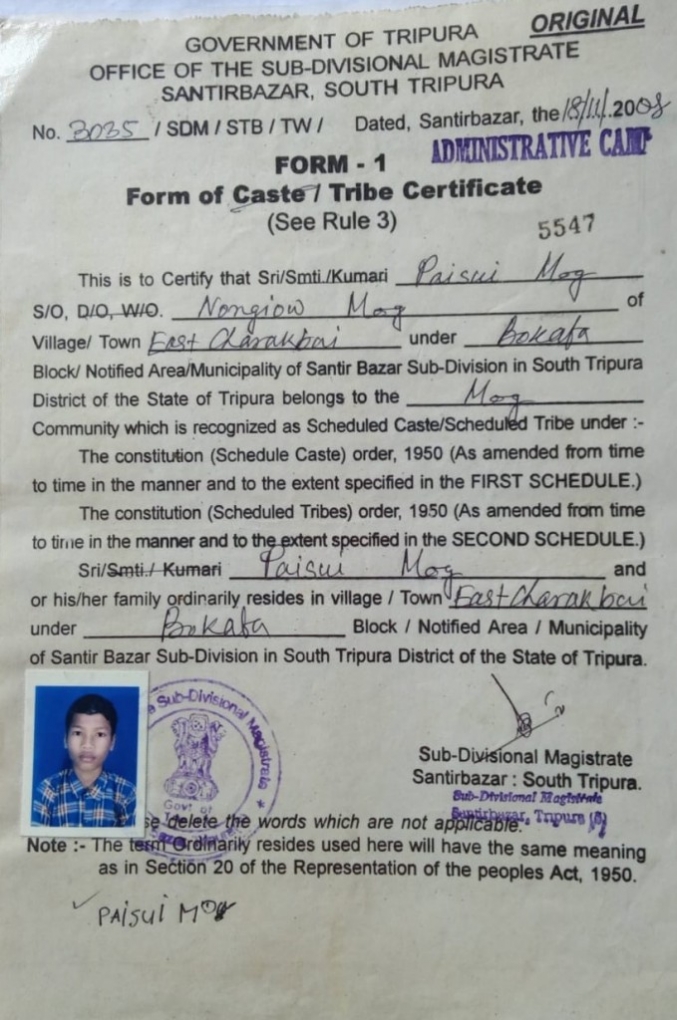 ORIGINAL
GOVERNMENT OF TRIPURA
OFFICE OF THE SUB-DIVISIONAL MAGISTRATE
SANTIRBAZAR, SOUTH TRIPURA
No. 3035 / SDM / STB / TW / Dated, Santirbazar, the 18/11/.2008
ADMINISTRATIVE CAMP
FORM - 1
Form of Caste / Tribe Certificate
(See Rule 3)
5547
This is to Certify that Sri/Smti./Kumari Paisui Mog
S/O, D/O, W/O. Nongiow Mog of
Village/ Town East Charakbai under Bokafa
Block/ Notified Area/Municipality of Santir Bazar Sub-Division in South Tripura
District of the State of Tripura belongs to the Mog
Community which is recognized as Scheduled Caste/Scheduled Tribe under :-
The constitution (Schedule Caste) order, 1950 (As amended from time
to time in the manner and to the extent specified in the FIRST SCHEDULE.)
The constitution (Scheduled Tribes) order, 1950 (As amended from time
to time in the manner and to the extent specified in the SECOND SCHEDULE.)
Sri/Smti./ Kumari Paisui Mog and
or his/her family ordinarily resides in village / Town East Charakbai
under Bokafa Block / Notified Area / Municipality
of Santir Bazar Sub-Division in South Tripura District of the State of Tripura.
Sub-Divisional Magistrate
Govt of
Sub-Divisional Magistrate
Santirbazar : South Tripura.
Sub-Divisional Magistrate
Santirbazar, Tripura (S)
delete the words which are not applicable.
Note :- The term Ordinarily resides used here will have the same meaning
as in Section 20 of the Representation of the peoples Act, 1950.
PAISUI MOG